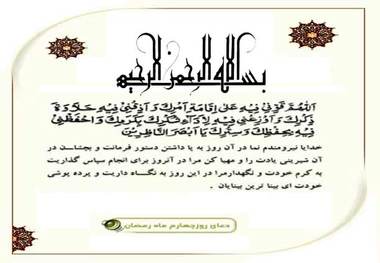 بسم الله الرحمن الرحیم
اَللّهُمَّ قَوِّنی فیهِ عَلی اِقامَةِ اَمرِکَ وَ اَذِقنی فیهِ حَلاوَةَ
ذِکرِکَ وَ اَوزِعنی فیهِ لِاَداءِ شُکرِکَ بِکَرَمِکَ وَ احفَظنی
فیهِ بِحِفظِکَ وَ سِترِکَ یا اَبصَرَ النّاظِرینَ
خدایا نیرومندم نما در آن روز به پا داشتن دستور فرمانت و بچشاسن در
آن شیرینی یادت را و مهیا کن مرا در آنروز برای انجام سپاس گذاریت
به کرم خودت و نگهدارمرا در این روز به نگاه داریت و پرده پوشی
خودت ای بینا ترین بینایان .
دعای روزچهارم ماه رمضان